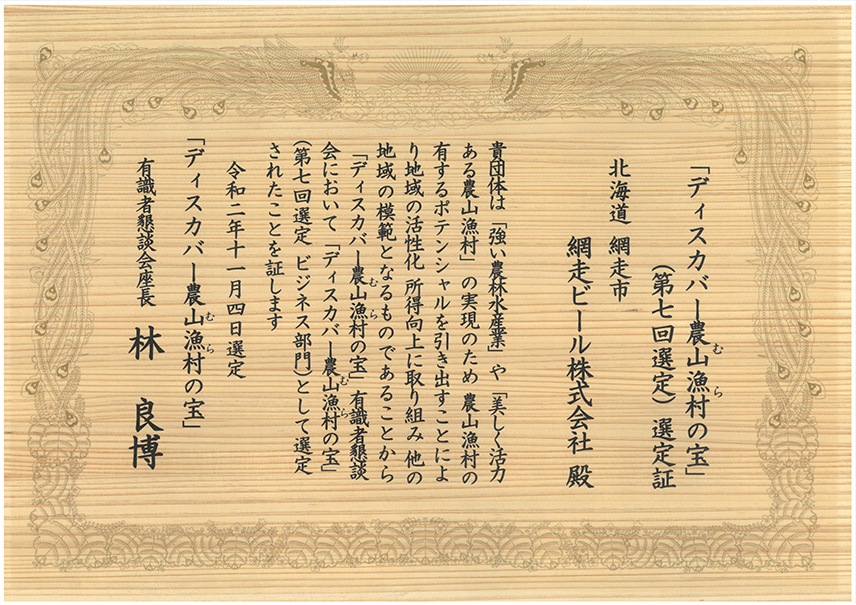 「ディスカバー農山漁村の宝」
（第七回選定）選定証
北海道 網走市
網走ビール株式会社 殿
貴団体は「強い農林水産業」や「美しく活力
ある農山漁村」の実現のため 農山漁村の
有するポテンシャルを引き出すことによ
り地域の活性化 所得向上に取り組み 他の
地域の模範となるものであることから
「ディスカバー農山漁村の宝」有識者懇談
会において「ディスカバー農山漁村の宝」
（第七回選定 ビジネス部門）として選定
されたことを証します
令和二年十一月四日選定
「ディスカバー農山漁村の宝」
有識者懇談会座長 林 良博